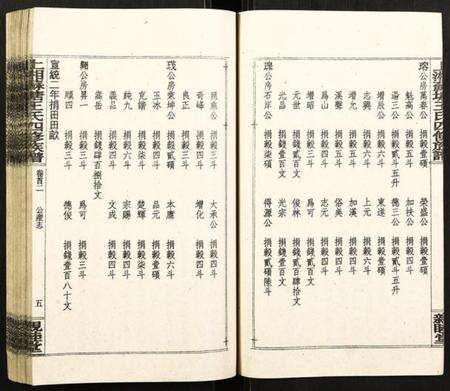 公房萬春公 捐穀壹碩 榮盛公 捐穀四斗
魁高公 捐穀五斗 加扶公 捐穀四斗
湯三公 捐穀貳斗五升 德三公 捐穀貳斗五升
增辰公 捐穀六斗 東遂 捐穀壹碩
志興 捐穀六斗 上元 捐穀六斗
增九 捐穀五斗 加漢 捐穀四斗
漢聲 捐穀五斗 俗美 捐穀四斗
爲山 捐穀四斗 志元 捐穀五斗
增昭 捐穀四斗 爲可 捐穀四斗
元世 捐錢壹百文 俊林 捐錢貳百肆拾文
元昌 捐錢壹百文 光宗 捐錢壹百文
瑰公房石岸公 捐穀貳碩 得源公 捐穀貳碩陸斗
公 捐穀四斗 大承公 捐穀四斗
奇峰 捐穀四斗 增化 捐穀四斗
良正 捐穀三斗
公房東坤公 捐穀貳碩 本唐 捐穀六斗
玉冰 捐穀四斗 品元 捐穀壹碩
克鎮 捐穀柒斗 楚輝 捐穀柒斗
純九 捐穀六斗 宗賜 捐穀四斗
義品 捐穀四斗 文成 捐穀四斗
高岳 捐錢肆百捌拾文
公房昇一 捐穀三斗 爲可 捐穀三斗
順四 捐穀三斗 德俊 捐錢壹百八十文
宣統二年捐田畝
王氏四修族譜 卷首二 公產志 五 親睦堂